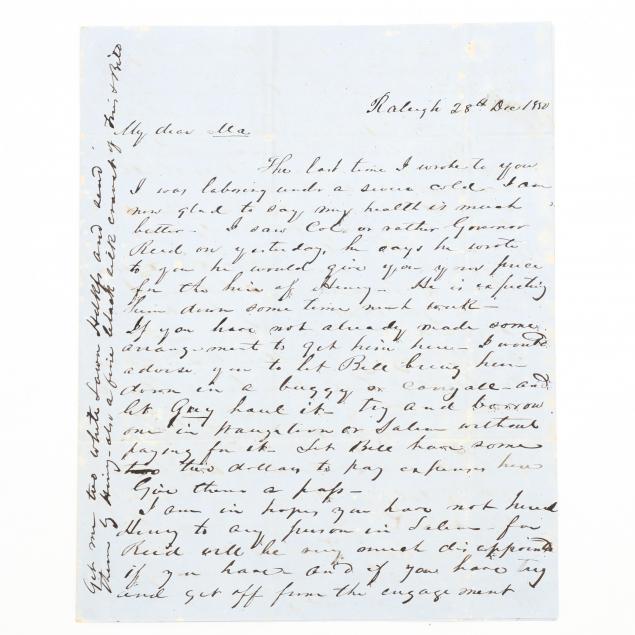 Raleigh 28th Dec 1850
My dear Ma
The last time I wrote to you
I was laboring under a severe cold. I am
now glad to say my health is much
better - I saw Col. or rather Governor
Reid on yesterday, he says he wrote
to you he would give you your price
for the hire of Henry - He is expecting
him down some time next week -
If you have not already made some
arrangement to get him here - I would
advise you to let Bill bring him
down in a buggy or and
let Grey haul it - try and borrow
one in or Salem without
paying for it - Let Bill have some
two dollars to pay expenses here
Give them a pass -
I am in hopes you have not hired
Henry to any person in Salem - for
Reid will be very much disappointed
if you have and if you have try
and get off from the engagement
Get me two white Lawn Hdkfs and send
them by Henry - also a fine black silk cravat of & Bill